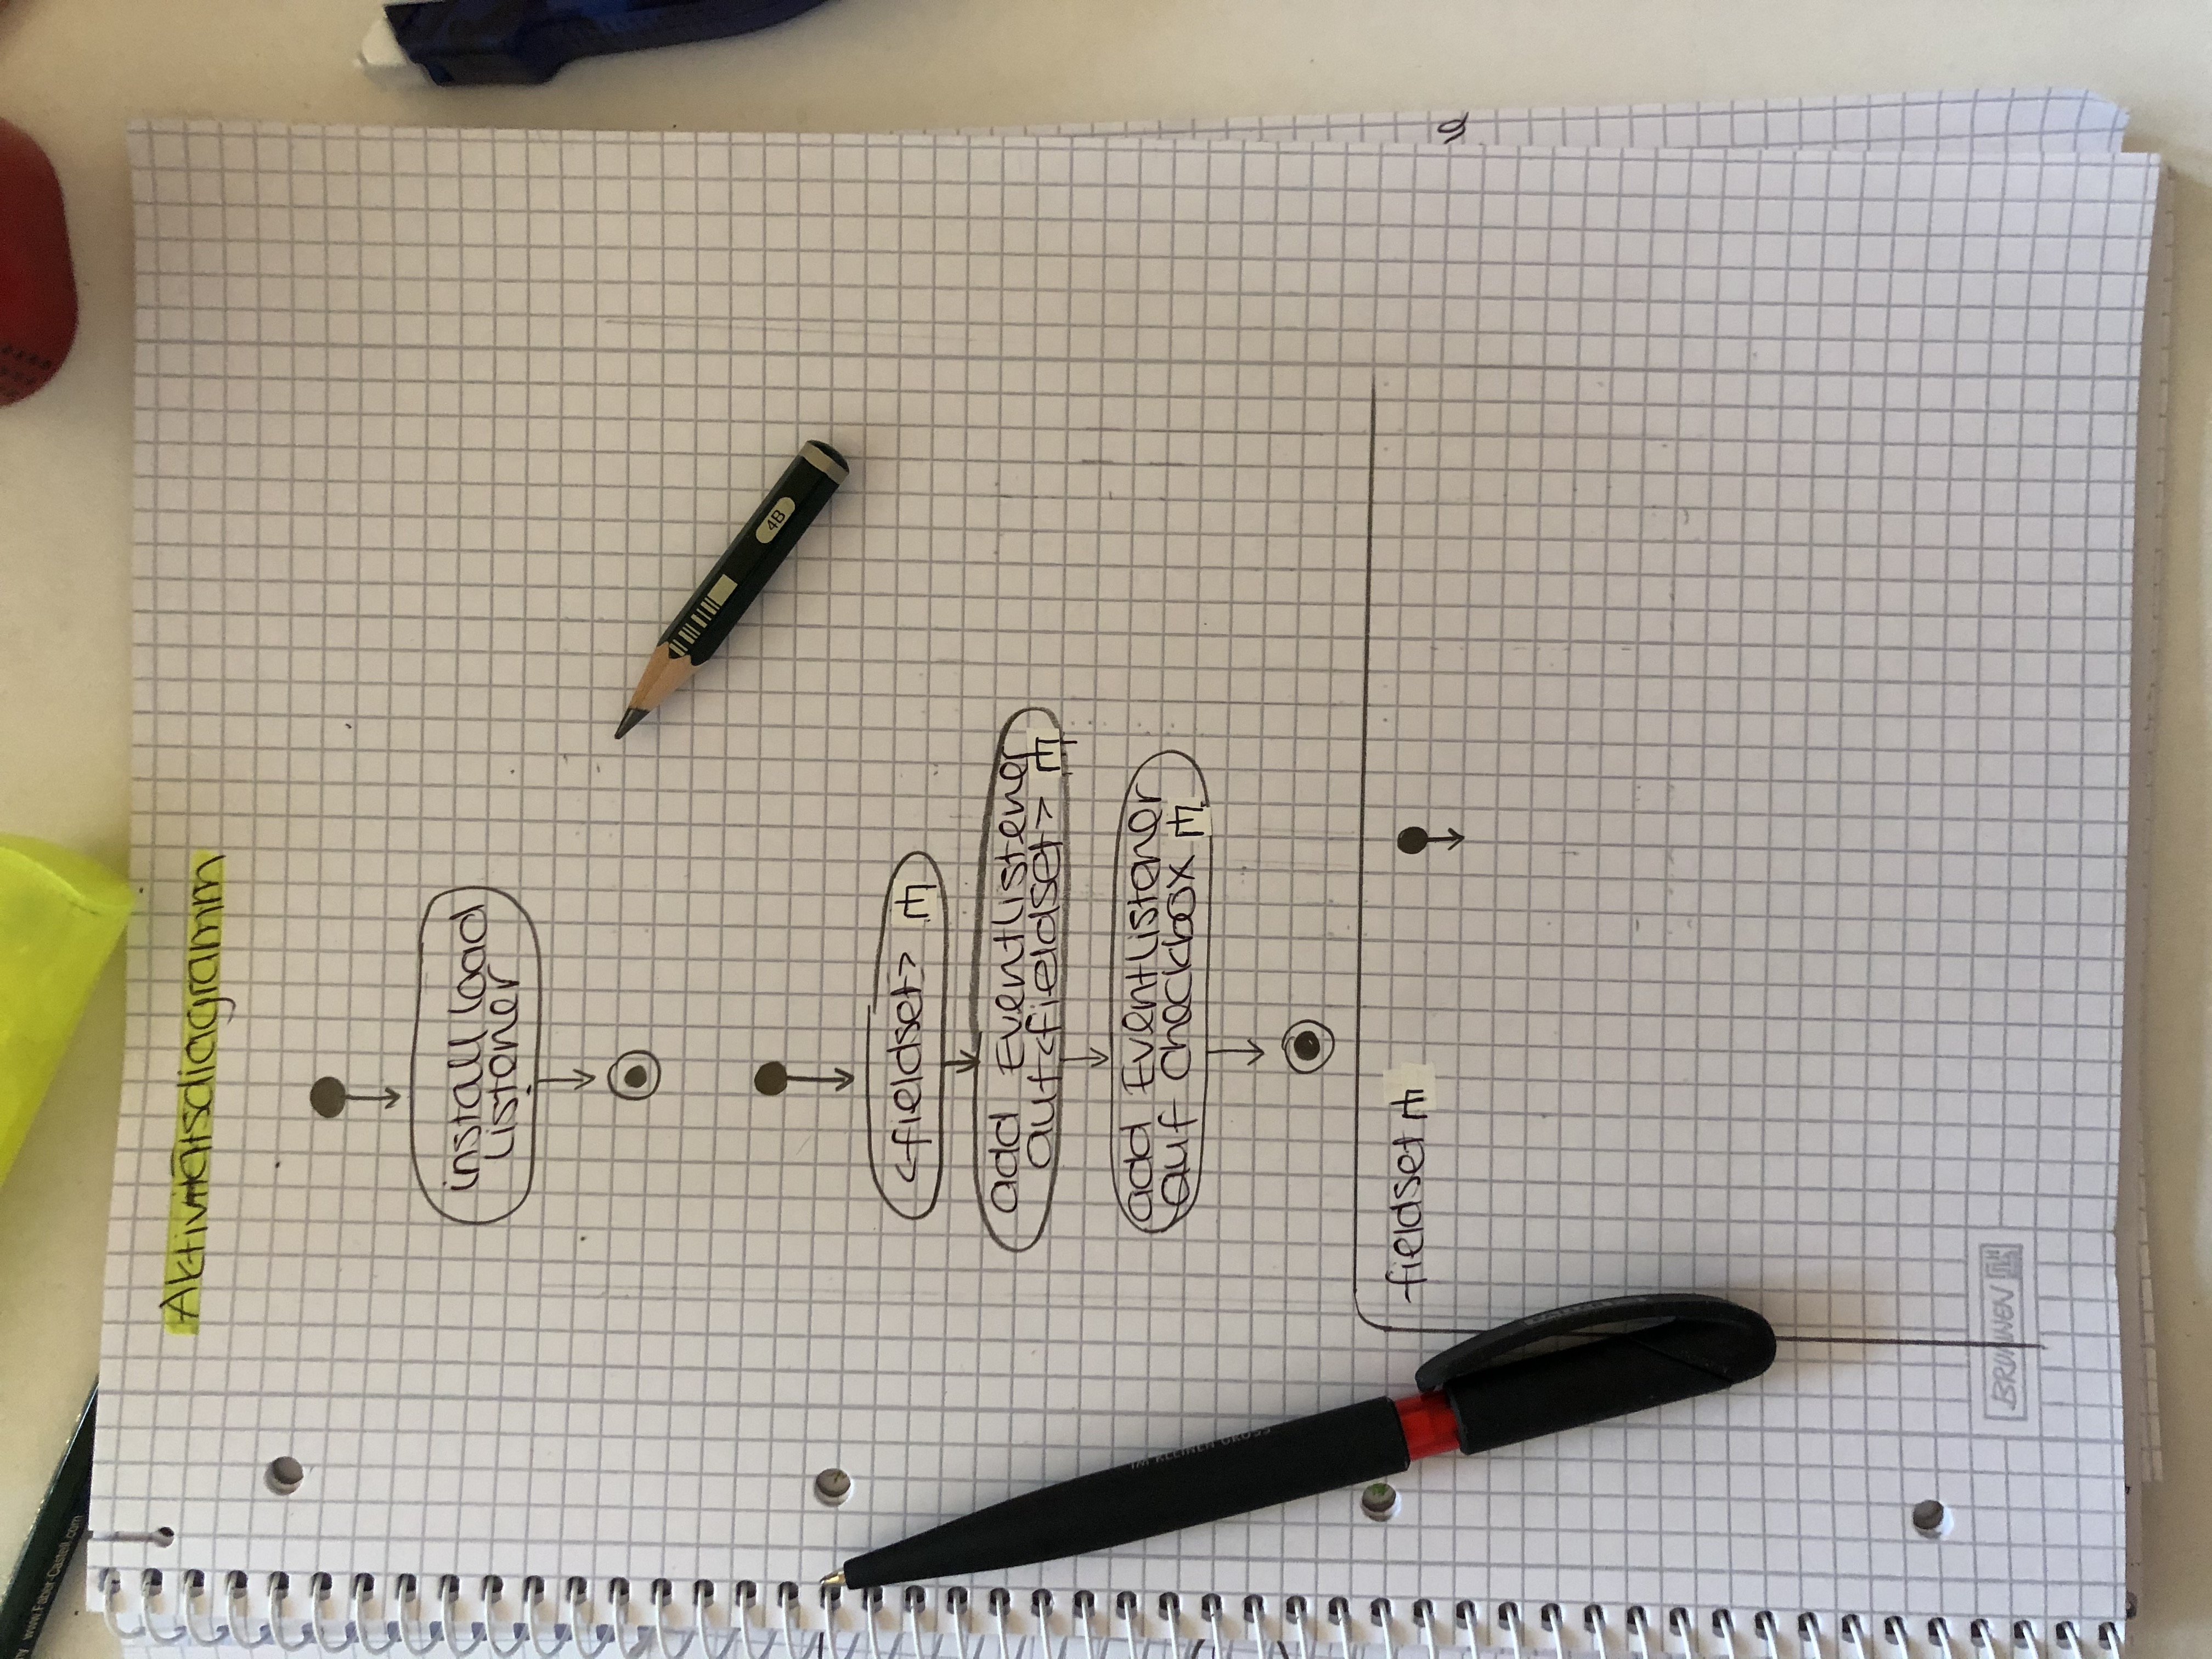 www.Faber-Castell.com
Aktivitätsdiagramm
install load
listener
4B
<fieldset>
add Eventlistener
auf <fieldset>
add Eventlistener
auf checkbox
fieldset
BRUNNEN